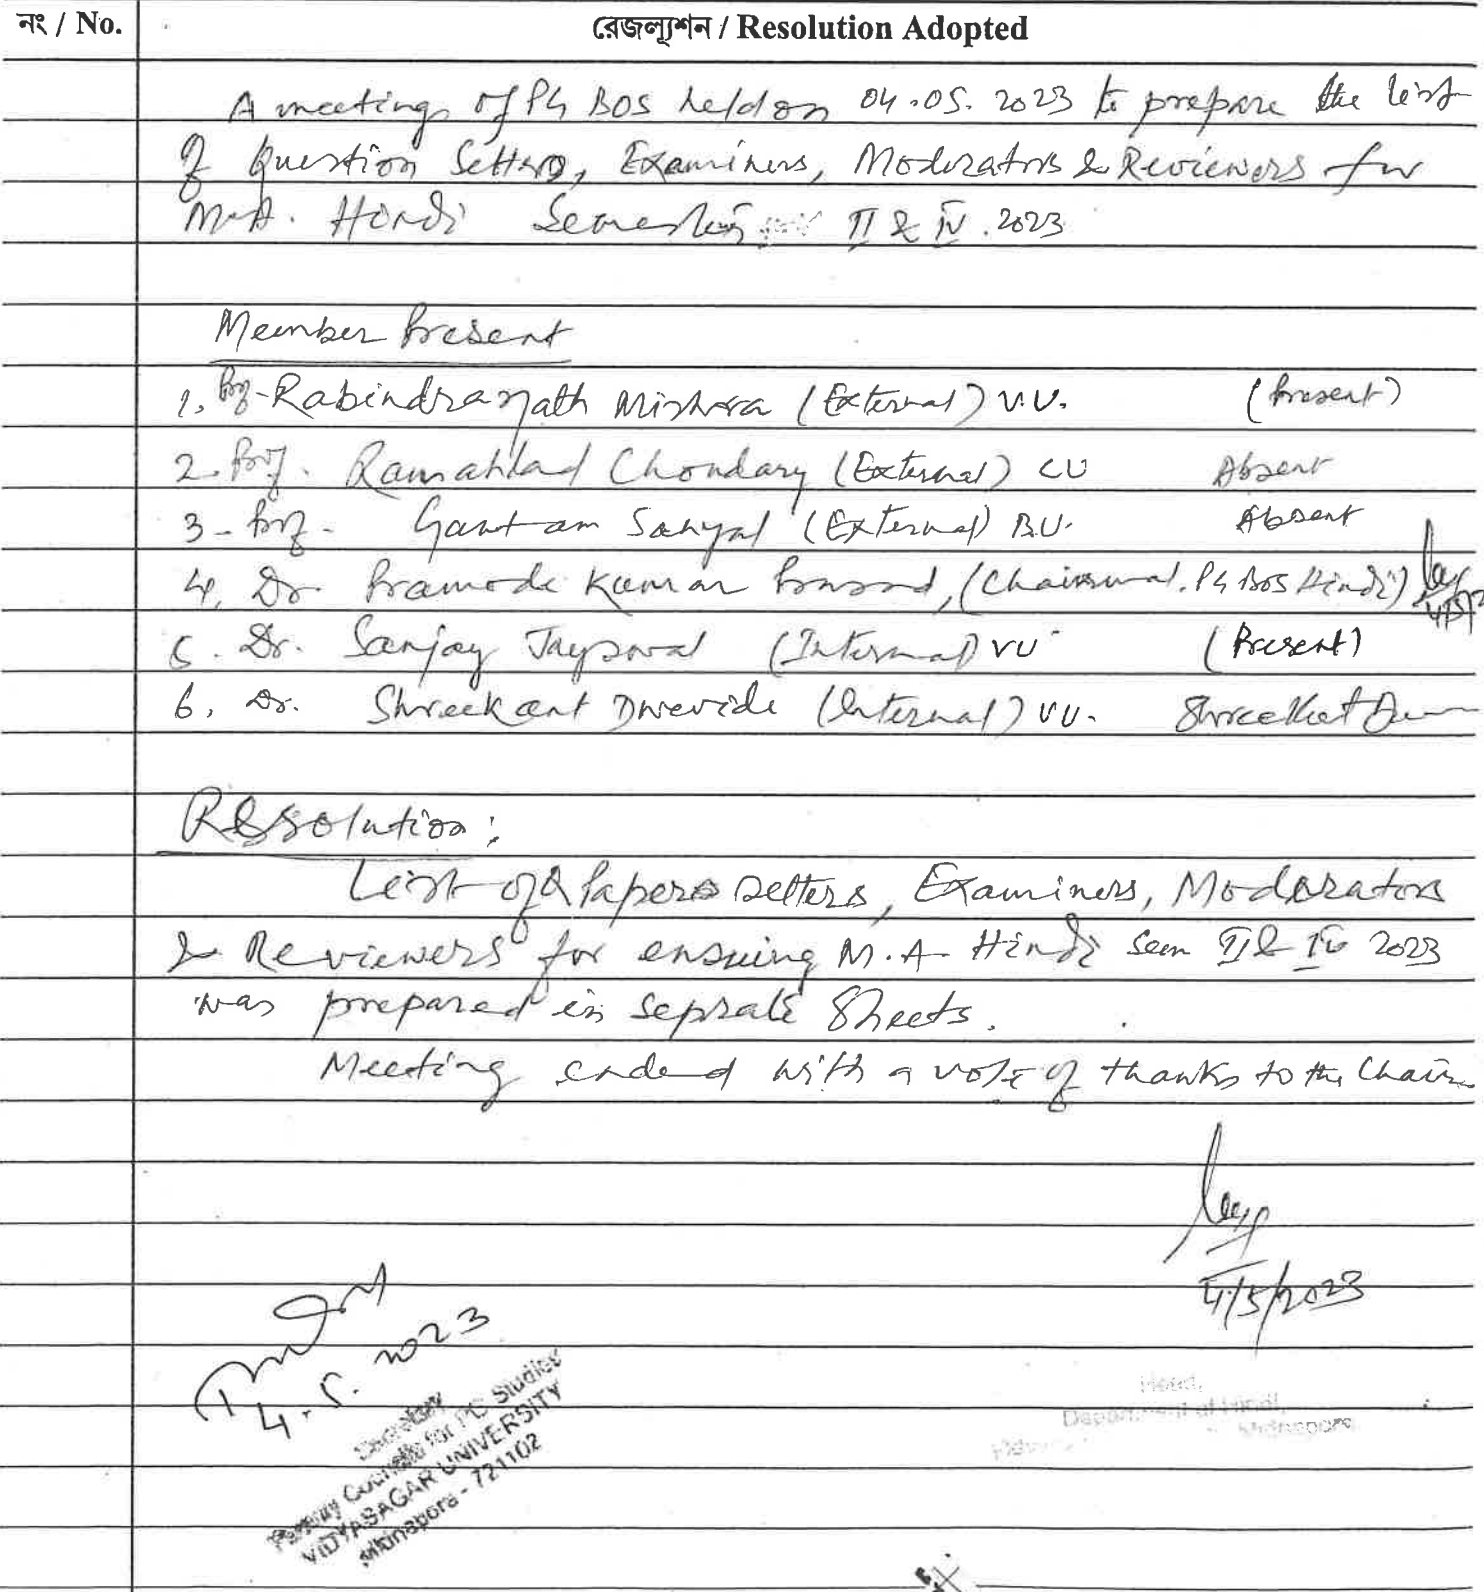 নং / No.
রেজল্যুশন / Resolution Adopted
A meeting of PG BOS held on 04.05.2023 to prepare the list
of Question Setters, Examiners, Moderators & Reviewers for
M.A. Hindi Semester II & IV. 2023
Member Present
1. Prof. Rabindranath Mishra (External) V.U. (Present)
2. Prof. Ramahlad Chondary (External) CU Absent
3 - Prof. Gautam Sanyal (External) B.U. Absent
4. Dr. Pramode Kumar Prasad, (Chairman. PG BOS Hindi)
5. Dr. Sanjay Jayswal (Internal) VU (Present)
6. Dr. Shreekant Dwevide (Internal) VU.
Resolution:
List of Papers setters, Examiners, Moderators
& Reviewers for ensuing M.A. Hindi Sem II & IV 2023
was prepared in seprate Sheets.
Meeting ended with a vote of thanks to the Chair
4/5/2023
4.5.2023
Secretary
Faculty Councils for PG Studies
VIDYASAGAR UNIVERSITY
Midnapore - 721102
Head,
Department of Hindi,
Midnapore